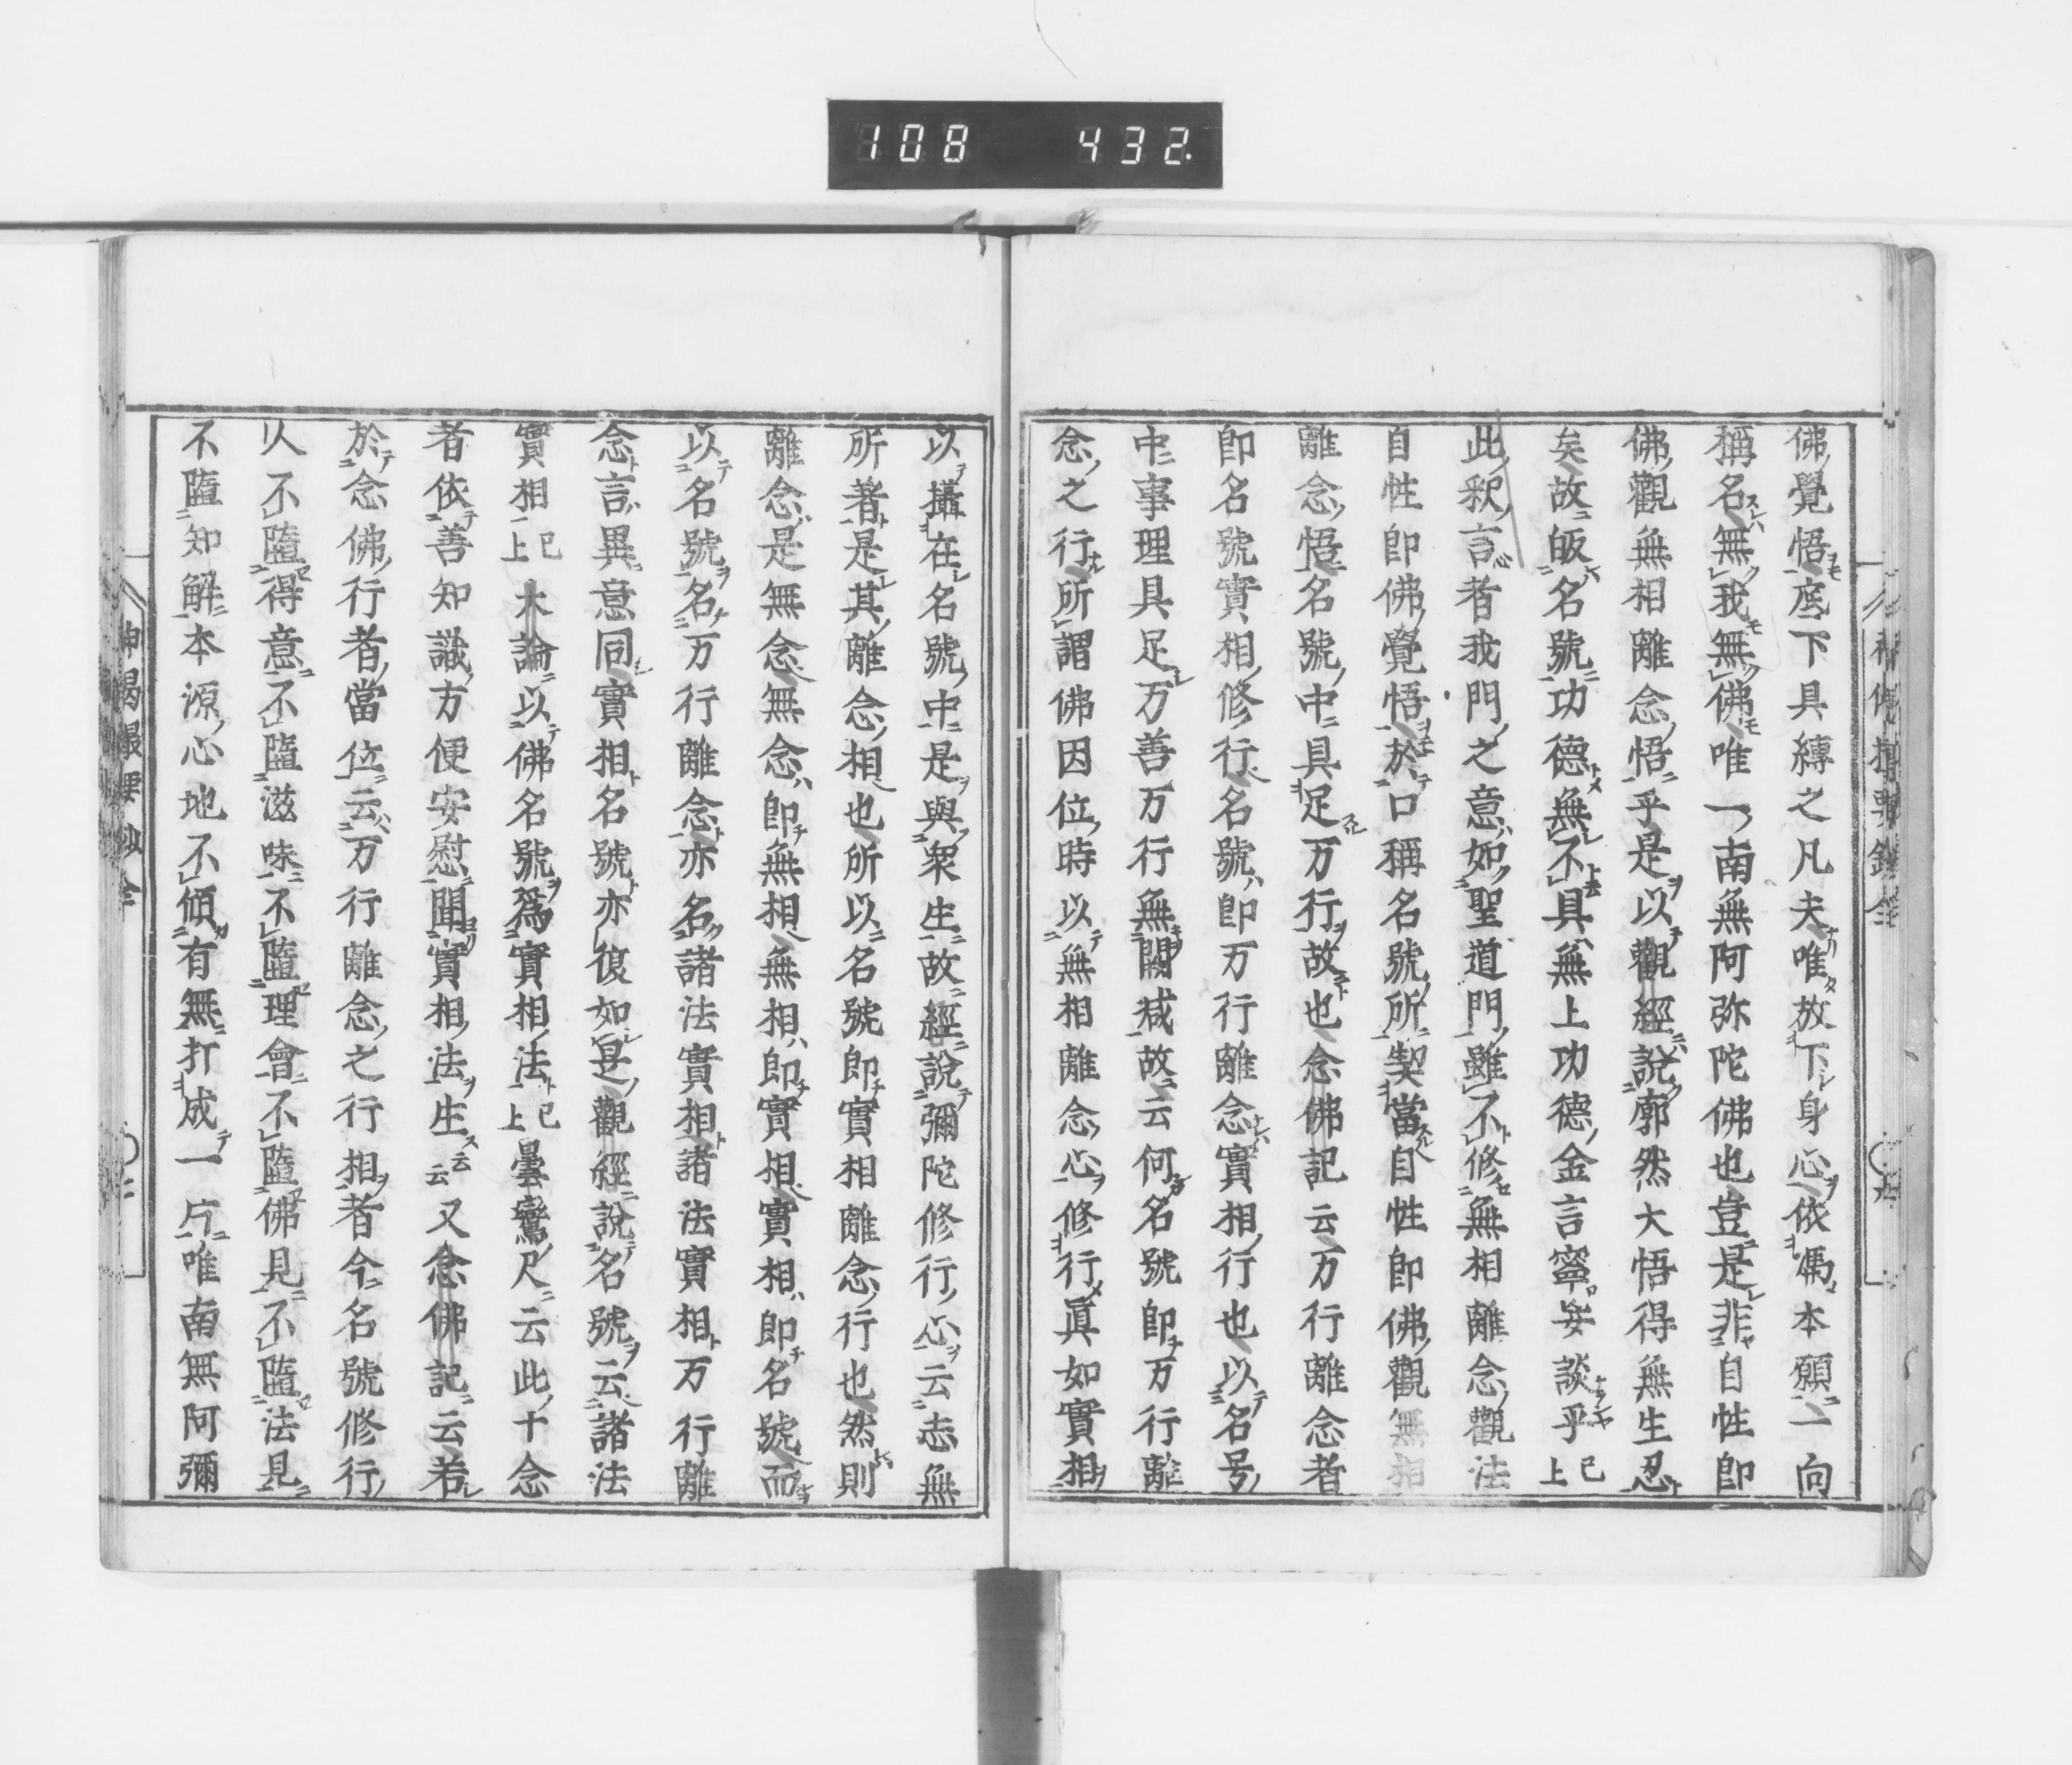 108 432.
佛覺悟底下具縛之凡夫唯放下身心依馮本願一向
稱名無我無佛唯一南無阿弥陀佛也豈是非自性即
佛觀無相離念悟乎是以觀經說廓然大悟得無生忍
矣故皈名號功德無不具無上功德金言寧妄談乎已上
此釈言者我門之意如聖道門雖不修無相離念觀法
自性即佛覺悟於口稱名號所契當自性即佛觀無相
離念悟名號中具足万行故也念佛記云万行離念者
即名號實相修行名號即万行離念實相行也以名号
中事理具足万善万行無闕減故云何名號即万行離
念之行所謂佛因位時以無相離念心修行眞如實相
以攝在名號中是與衆生故經說彌陀修行心云志無
所著是其離念相也所以名號即實相離念行也然則
離念是無念無念即無相無相即實相實相即名號而
以名號名万行離念亦名諸法實相諸法實相万行離
念言異意同實相名號亦復如是觀經說名號云諸法
實相已上大論以佛名號爲實相法已上曇鸞尺云此十念
者依善知識方便安慰聞實相法生云云又念佛記云若
於念佛行者當位云万行離念之行相者今名號修行
人不墮得意不墮滋味不墮理會不墮佛見不墮法見
不墮知解本源心地不傾有無打成一片唯南無阿彌